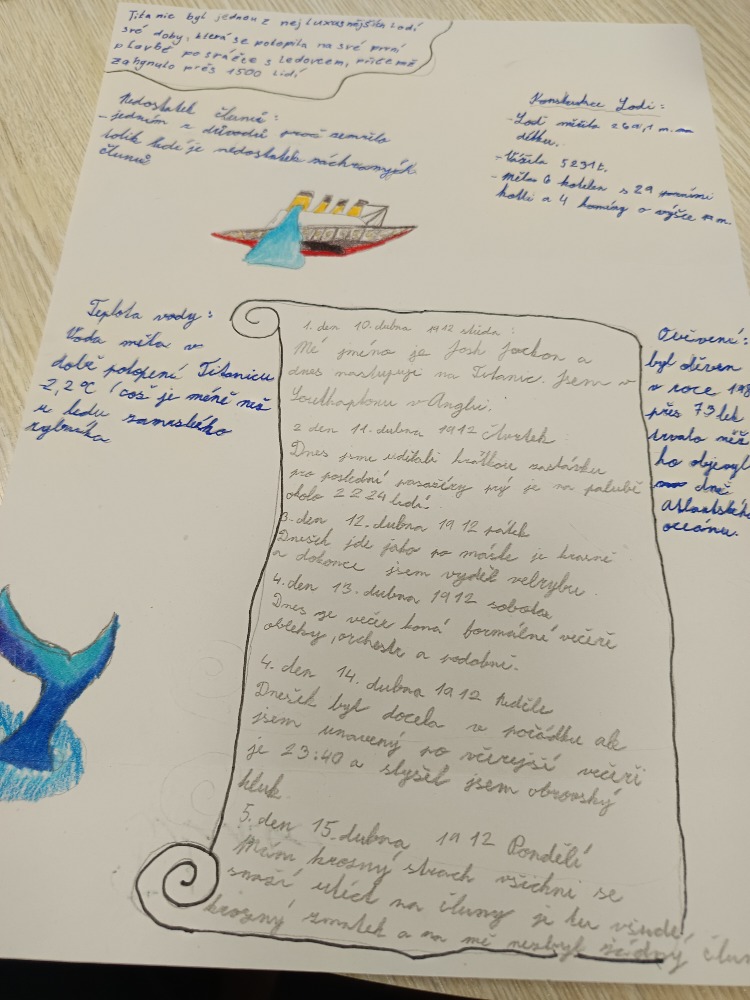 Titanic byl jednou z nejluxusnějších lodí
své doby, která se potopila na své první
plavbě po srážce s ledovcem, přičemž
zahynulo přes 1500 lidí
Nedostatek člunů:
- jedním z důvodů proč zemřelo
tolik lidí je nedostatek záchranných
člunů
Konstrukce Lodi:
- Lodi měřila 269,1 m na
délku.
- Vážila 5231t.
- Měla 6 kotelen s 29 parními
kotli a 4 komíny o výšce m.
Teplota vody:
Voda měla v
době potopení Titanicu
-2,2°C (což je méně než
u ledu zamrslého
rybníka
1. den 10. dubna 1912 středa:
Mé jméno je Josh Jackon a
dnes nastupuji na Titanic. Jsem v
Southaptonu v Anglii.
2. den 11. dubna 1912 čtvrtek
Dnes jsme udělali krátkou zastávku
pro poslední pasažéry prý je na palubě
okolo 2224 lidí.
3. den 12. dubna 1912 pátek
Dnešek jde jako po másle je krásně
a dokonce jsem vyděl velrybu.
4. den 13. dubna 1912 sobota
Dnes se večer koná formálné večeře
obleky, orchestr a podobně.
4. den 14. dubna 1912 Neděle
Dnešek byl docela v pořádku ale
jsem unavený po včerejší večeři
je 23:40 a slyšel jsem obrovský
hluk.
5. den 15. dubna 1912 Pondělí
Mám hrosný strach všichni se
snaží utéct na čluny je tu všudě
hrozný zmatek a na mě nezbyl žádný člun
Ověvení:
byl
v roce 198
přes 73 let
trvalo než
ho objevyl
dně
Atlantského
oceánu.